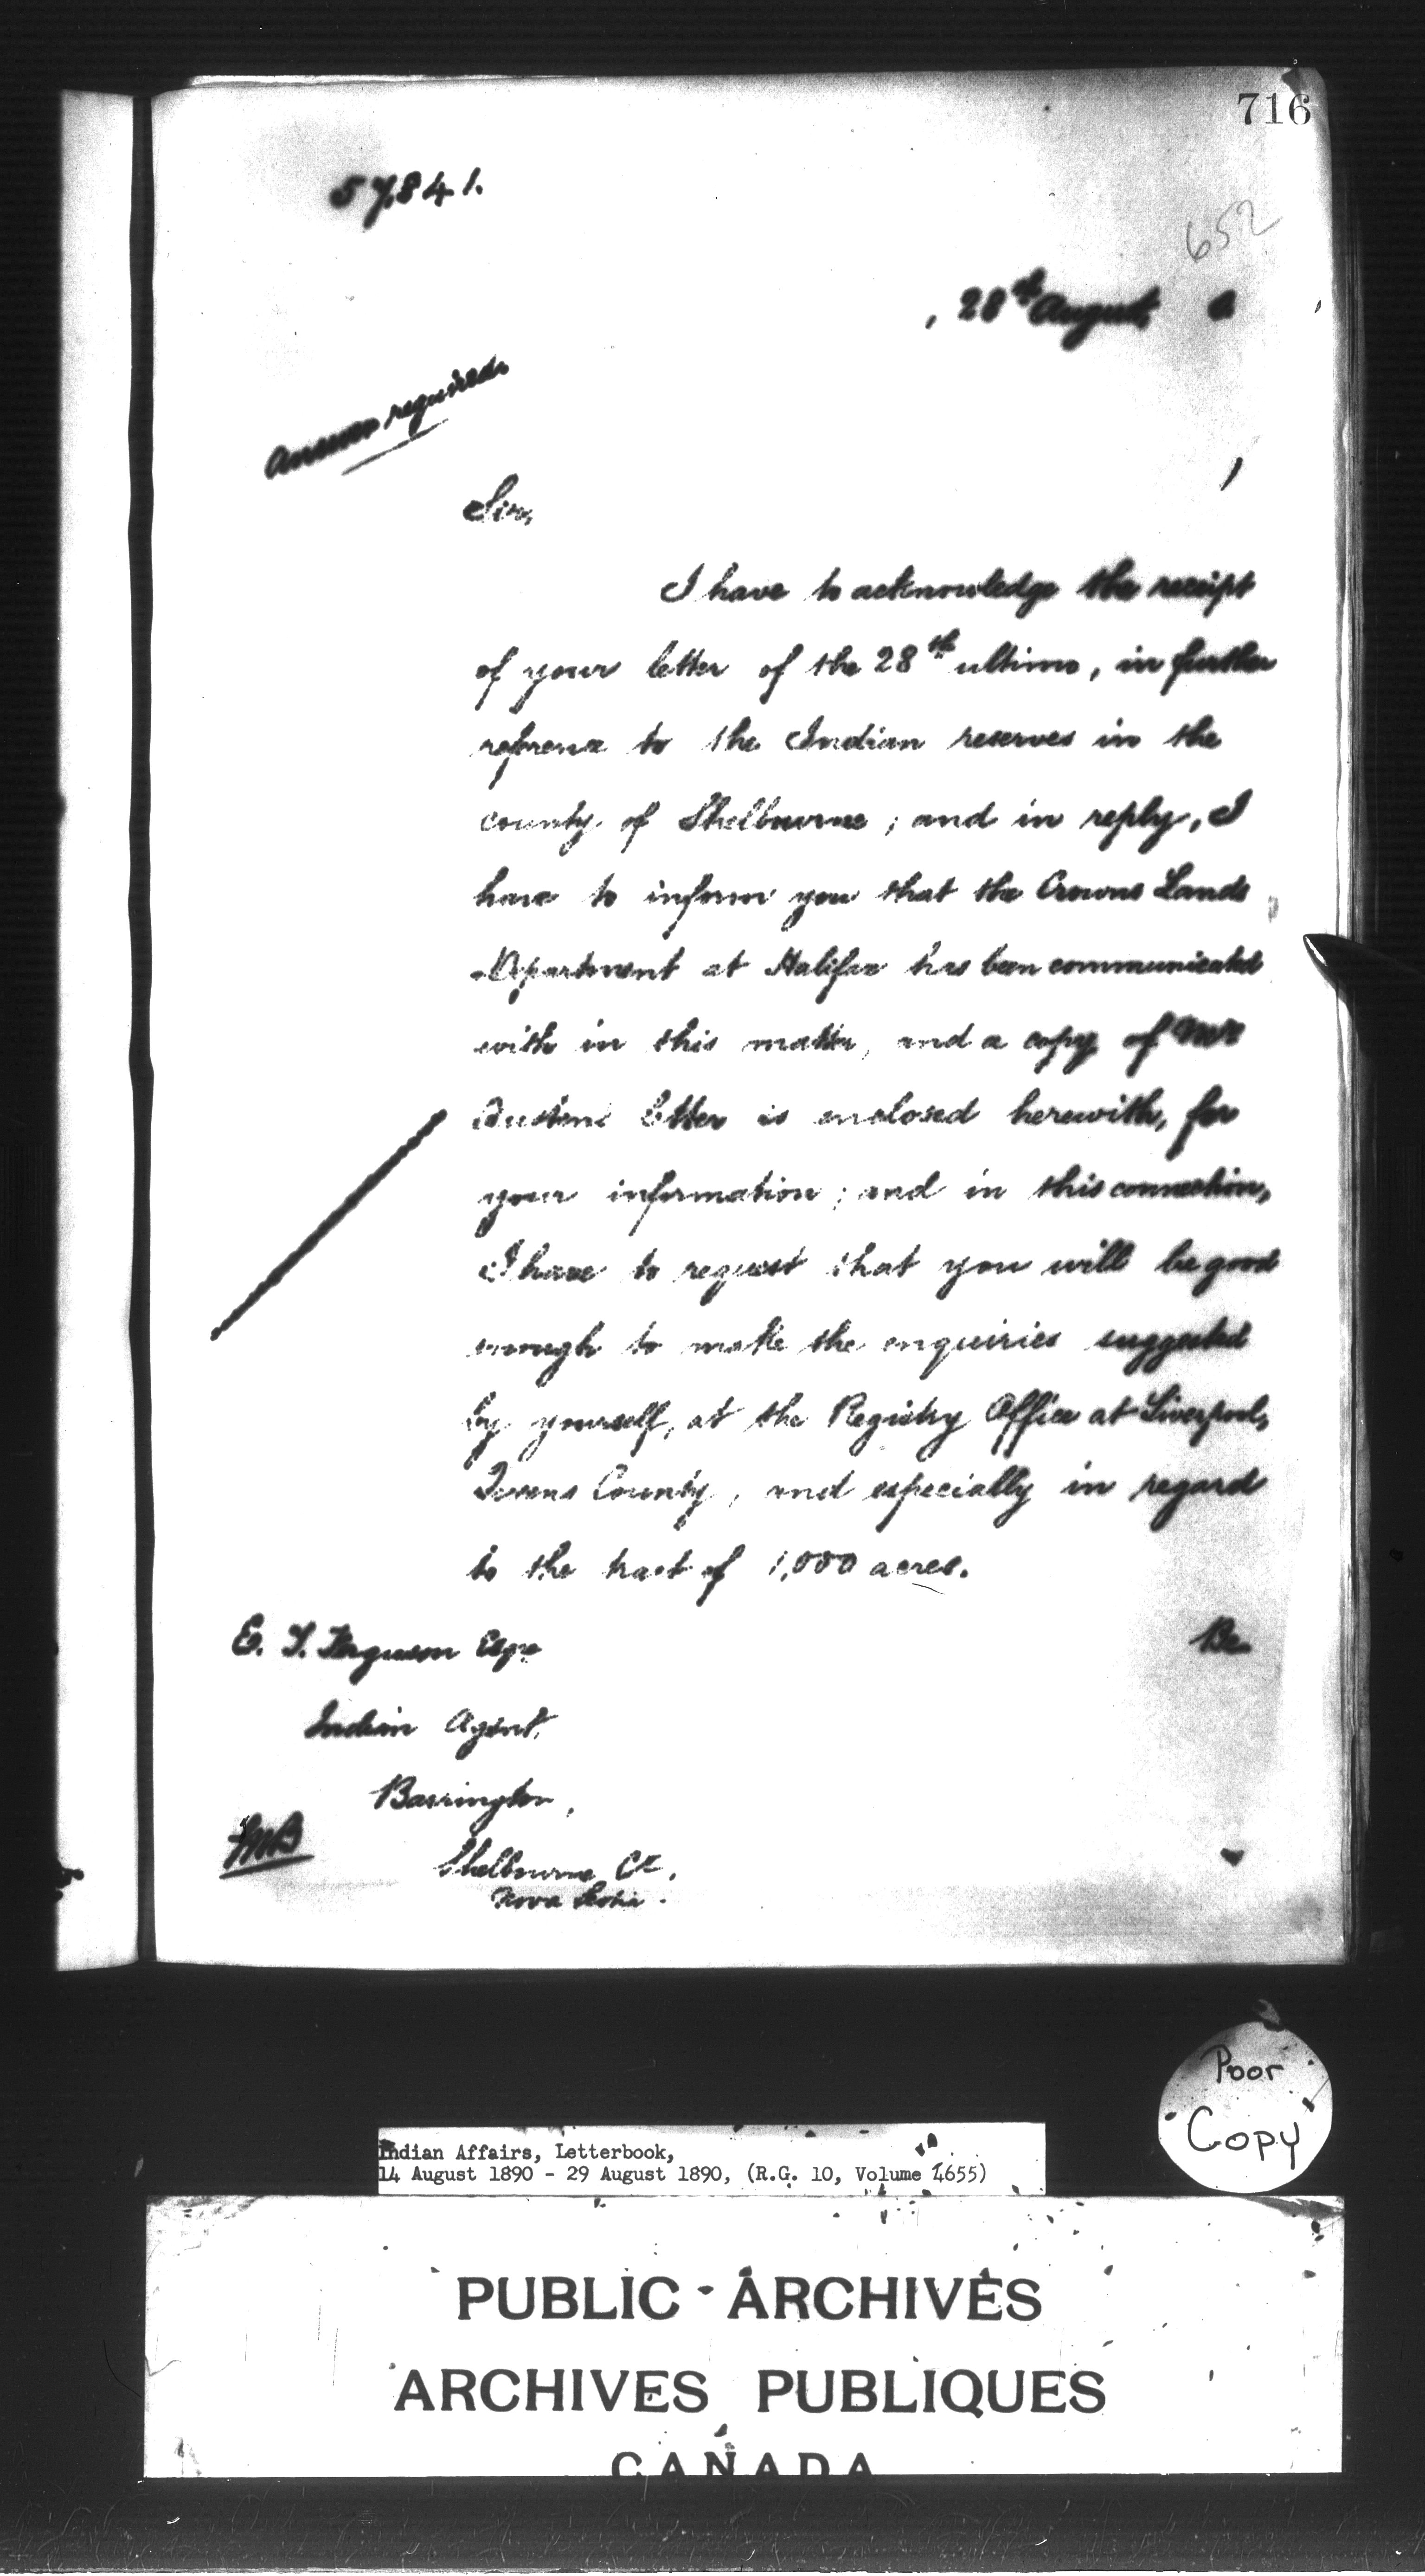 716
57,841.
652
, 28th August, 0.
Answer required.
Sir,
I have to acknowledge the receipt
of your letter of the 28th ultimo, in further
reference to the Indian reserves in the
county of Shelburne ; and in reply, I
have to inform you that the Crown Lands
Department at Halifax has been communicated
with in this matter, and a copy of Mr
Austen's letter is enclosed herewith, for
your information ; and in this connection,
I have to request that you will be good
enough to make the enquiries suggested
by yourself, at the Registry Office at Liverpool,
Queens County, and especially in regard
to the tract of 1,000 acres.
Be
E. Ferguson Esqre
Indian Agent,
Barrington,
Shelburne Co.,
Nova Scotia.
Poor
"Copy"
Indian Affairs, Letterbook,
14 August 1890 - 29 August 1890, (R.G. 10, Volume 4655)
PUBLIC ARCHIVES
ARCHIVES PUBLIQUES
CANADA